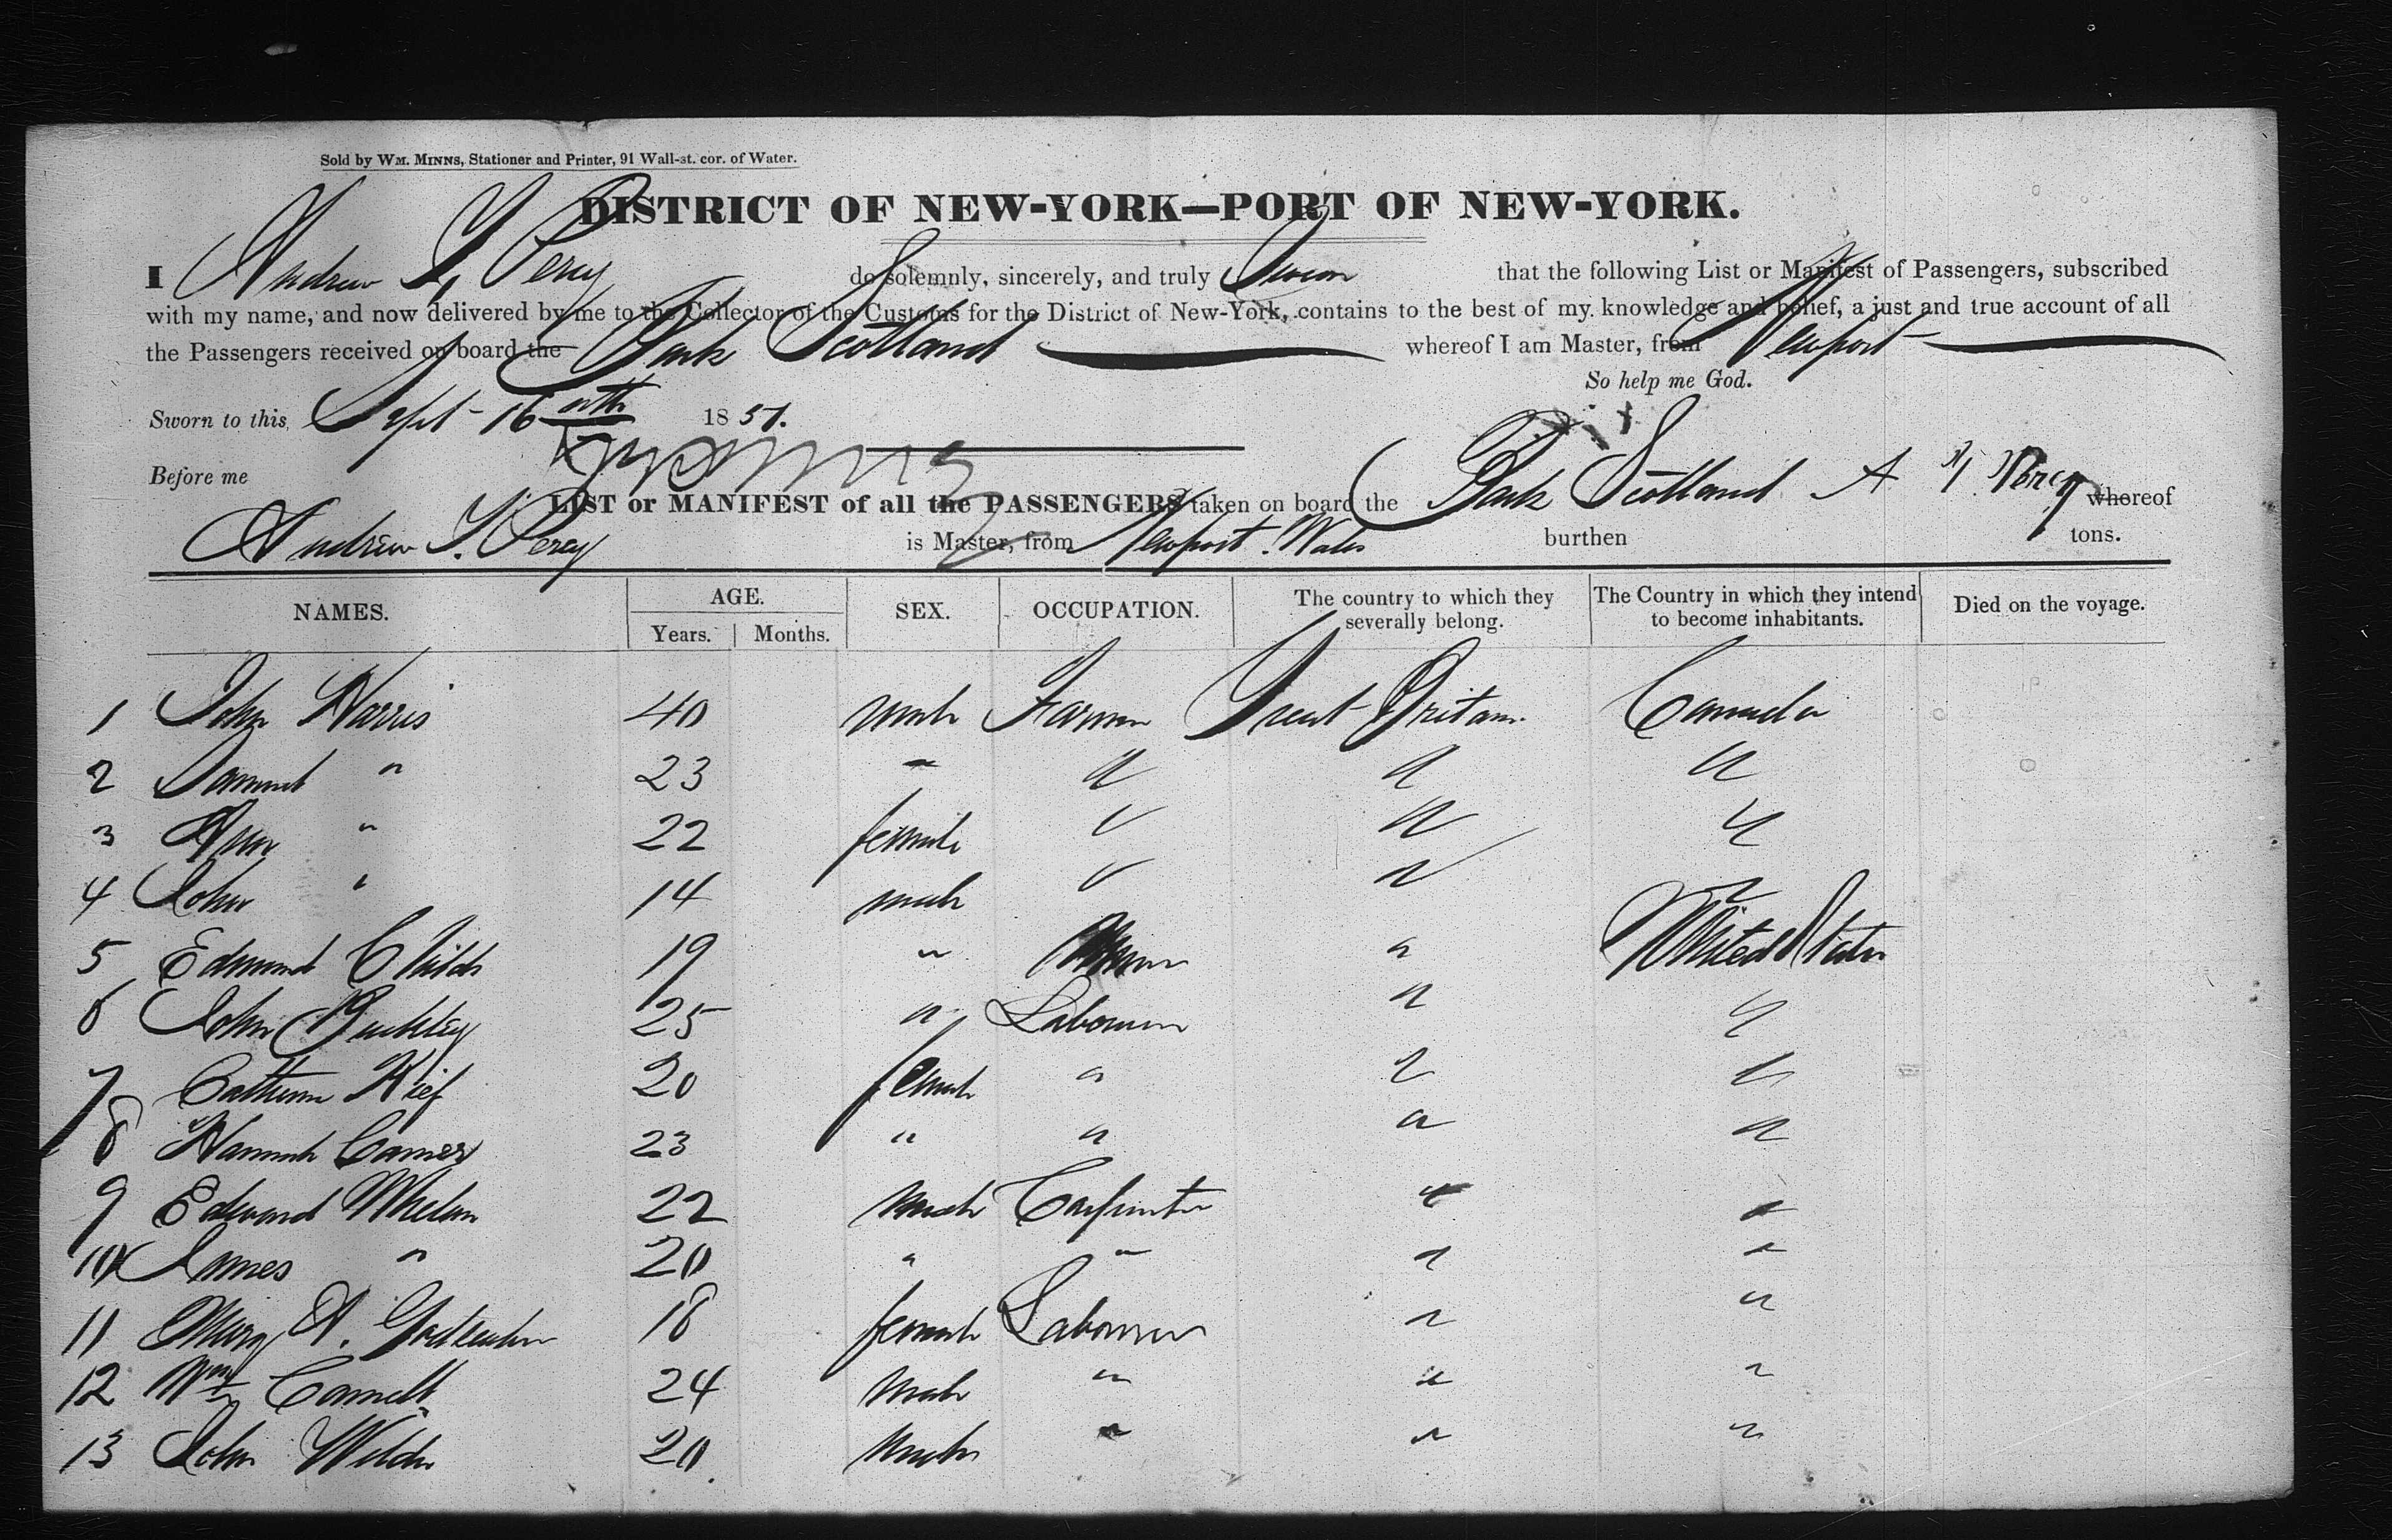 Sold by WM. MINNS, Stationer and Printer, 91 Wall-st. cor. of Water.
DISTRICT OF NEW-YORK—PORT OF NEW-YORK.
I Andrew Percy do solemnly, sincerely, and truly Swear that the following List or Manifest of Passengers, subscribed
with my name, and now delivered by me to the Collector of the Customs for the District of New-York, contains to the best of my knowledge and belief, a just and true account of all
the Passengers received on board the Bark Scotland whereof I am Master, from Newport
So help me God.
Sworn to this Sept 16 1851.
Before me
LIST or MANIFEST of all the PASSENGERS taken on board the Bark Scotland A Percy whereof
Andrew Percy is Master, from Newport Wales burthen tons.
NAMES. AGE. SEX. OCCUPATION. The country to which they severally belong. The Country in which they intend to become inhabitants. Died on the voyage.
Years. Months.
1 John Harris 40 male Farmer Great Britain Canada
2 Samuel " 23 " " " "
3 Ann " 22 female " " "
4 John " 14 male " " "
5 Edmund Childs 19 " " United States
6 John Buckley 25 " Labourer " "
7 Catherine Kief 20 female " " "
8 Hannah 23 " " " "
9 Edward Whelan 22 male Carpenter " "
10 James " 20 " " " "
11 Mary A. 18 female Labourer " "
12 Wm 24 male " " "
13 John Wilds 20 male " " "